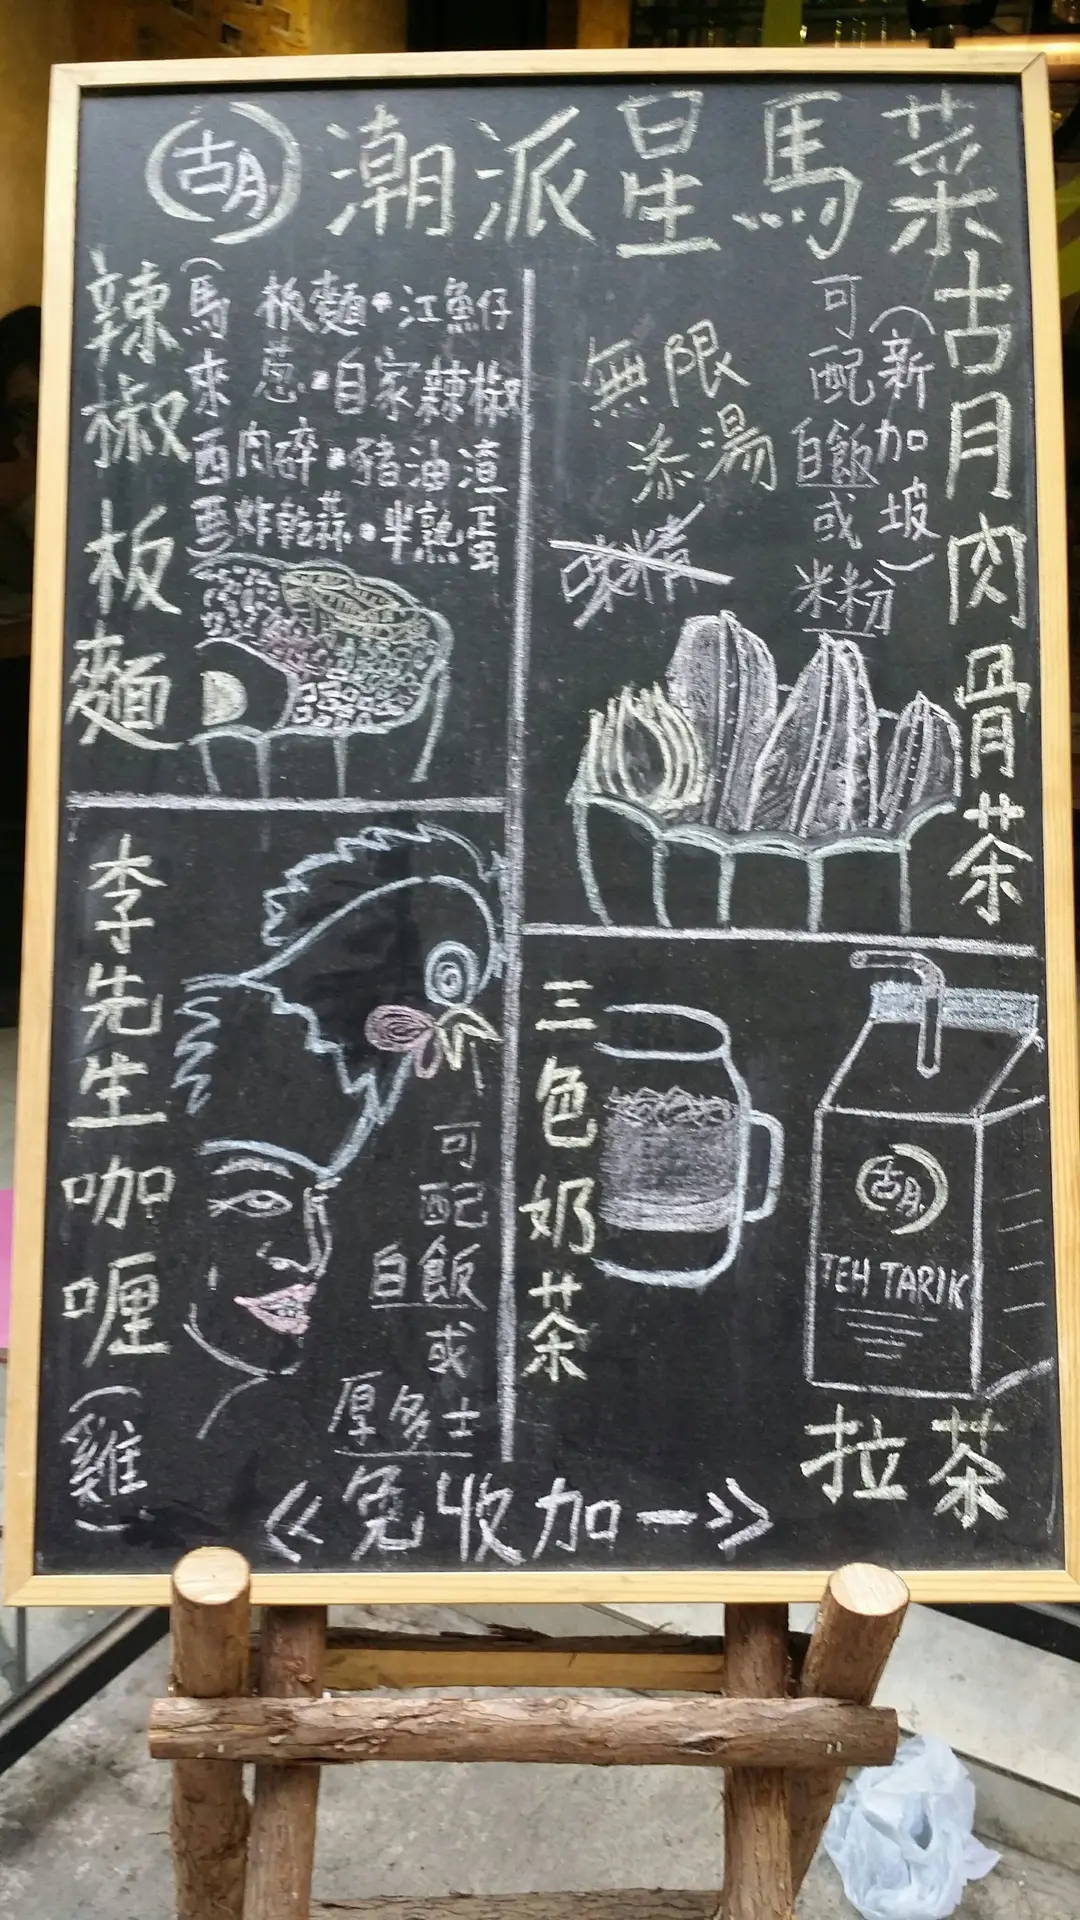 胡 潮派星馬菜
辣椒板麵
(馬來西亞)
板麵・江魚仔
葱・自家辣椒
肉碎・豬油渣
炸乾蒜・半熟蛋
古月肉骨茶
(新加坡)
可配白飯或米粉
無限
添湯
味精
李先生咖喱(雞)
可配白飯或厚多士
三色奶茶
胡
TEH TARIK
拉茶
《免收加一》